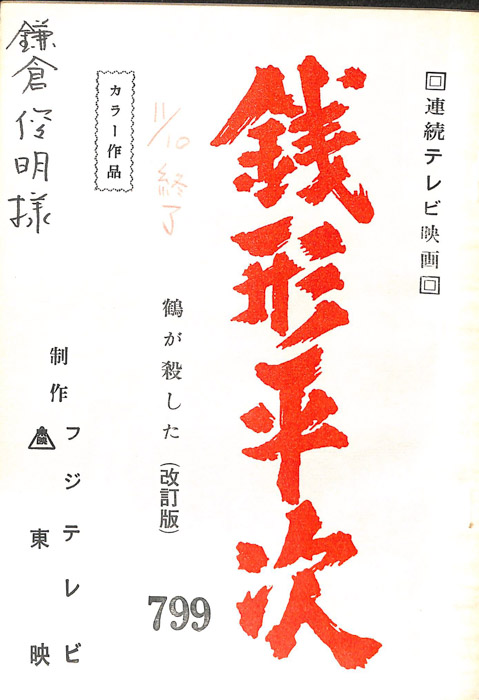 回連続テレビ映画回
銭形平次
鶴が殺した(改訂版)
799
11/10 終了
カラー作品
制作
フジテレビ
東映
鎌倉俊明様